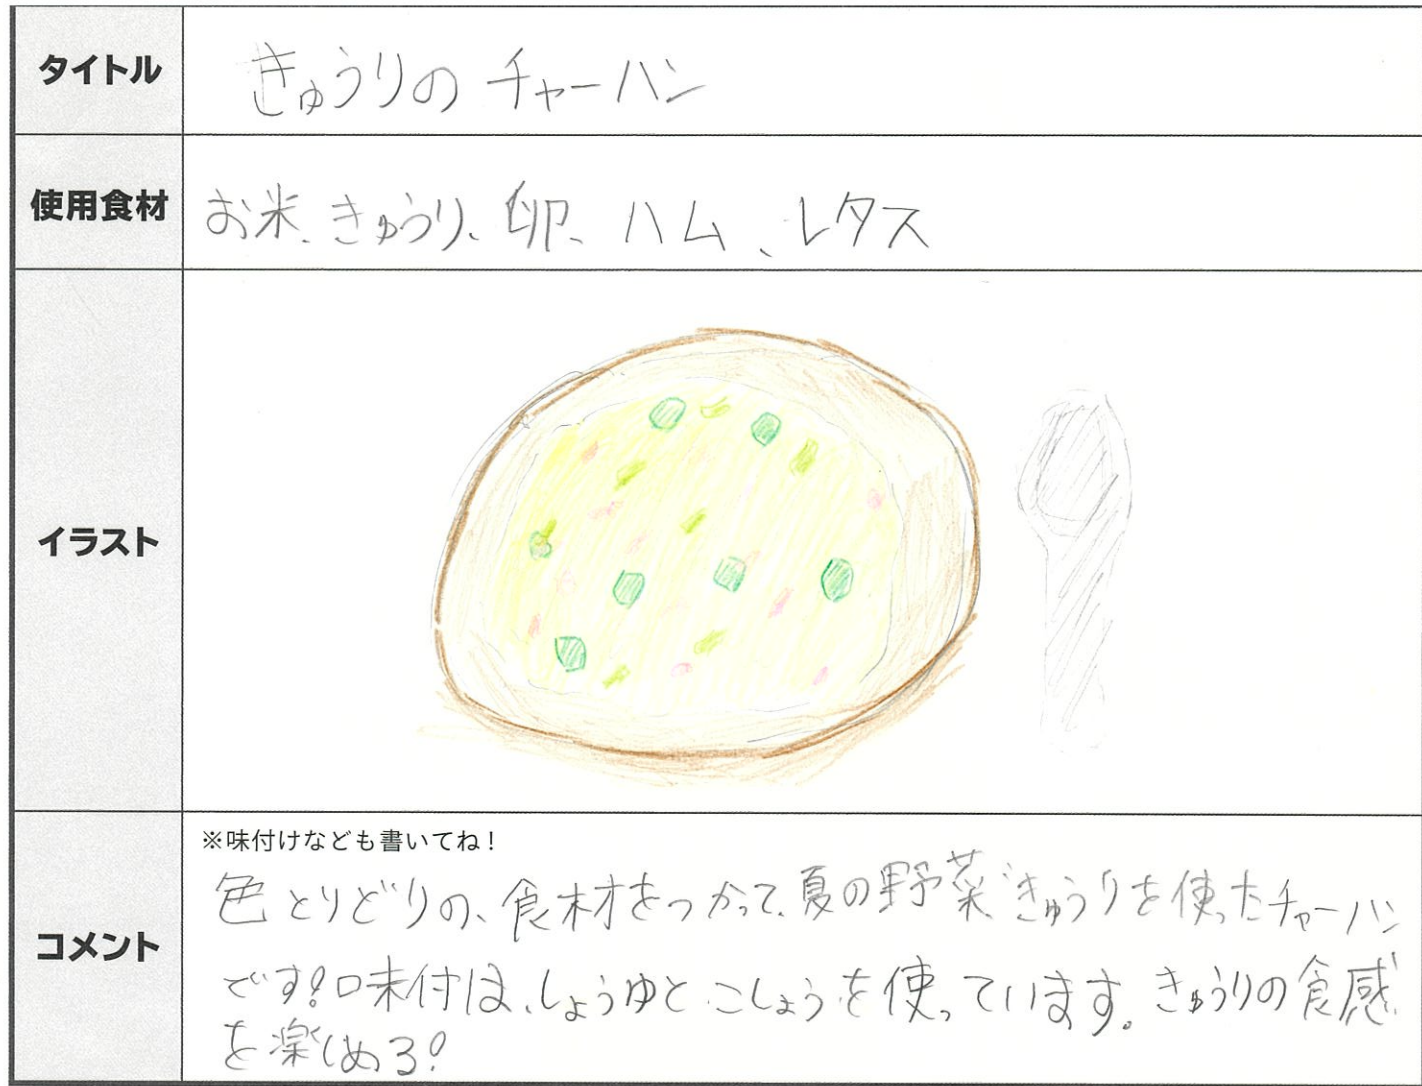 タイトル
きゅうりの チャーハン
使用食材
お米、きゅうり、卵、ハム、レタス
イラスト
コメント
※味付けなども書いてね!
色とりどりの、食材をつかって、夏の野菜きゅうりを使ったチャーハン
です!味付は、しょうゆと こしょうを使っています。きゅうりの食感
を楽しめる!